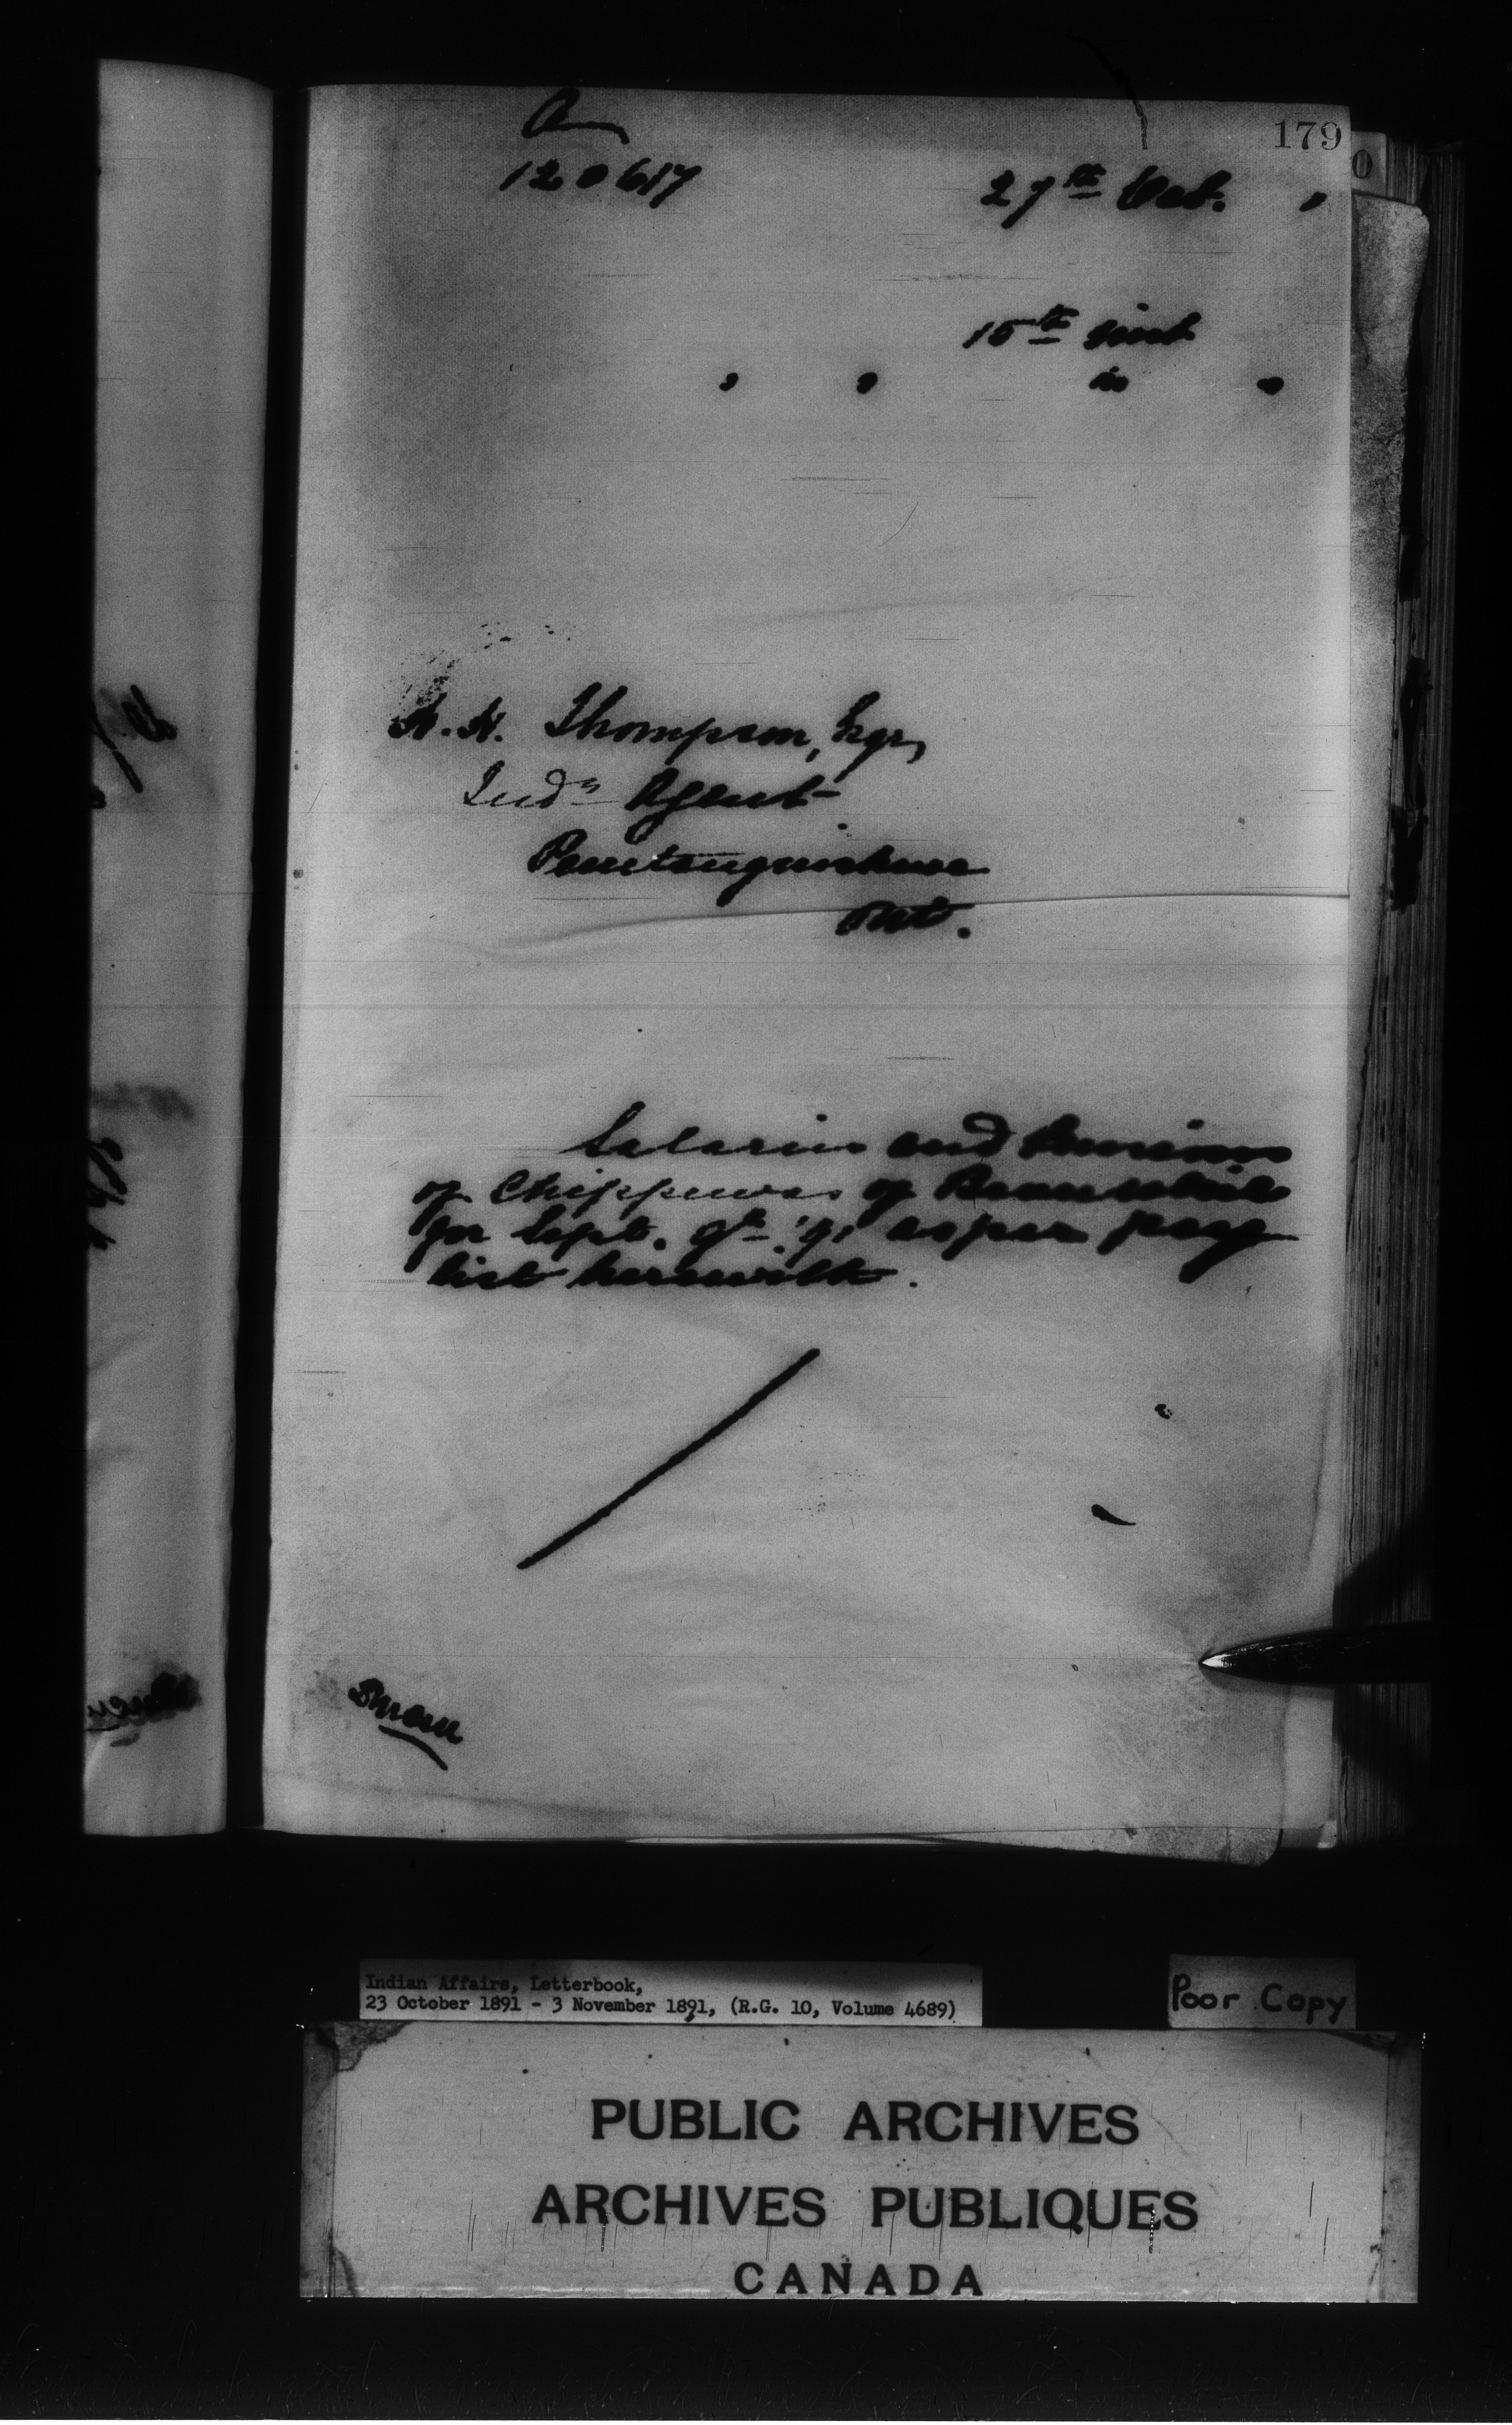 179
0
120617
27th Oct.
15th inst
H. H. Thompson, Esqr,
Indn Agent
Penetanguishene
Ont.
Salaries and Pensions
of Chippewas of Beausoleil
for Sept. qr. '91 as per pay
list herewith.
Indian Affairs, Letterbook,
23 October 1891 - 3 November 1891, (R.G. 10, Volume 4689)
Poor Copy
PUBLIC ARCHIVES
ARCHIVES PUBLIQUES
CANADA